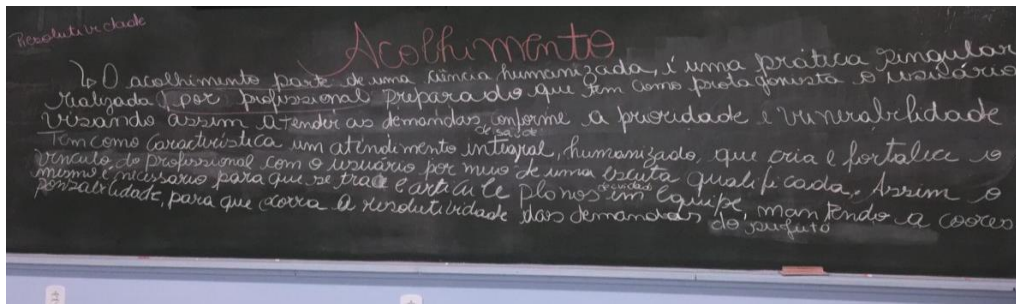 Resolutividade
Acolhimento
↳ O acolhimento parte de uma ciência humanizada, é uma prática singular
realizada por profissional preparado que tem como protagonista o usuário
visando assim atender as demandas, conforme a prioridade e vunerabilidade
de saúde
Tem como característica um atendimento integral, humanizado, que cria e fortalece o
vínculo do profissional com o usuário por meio de uma escuta qualificada. Assim o
mesmo é necessário para que se trace e articule planos de cuidado em equipe, mantendo a coores
ponsabilidade, para que ocorra a resolutividade das demandas
do sujeito